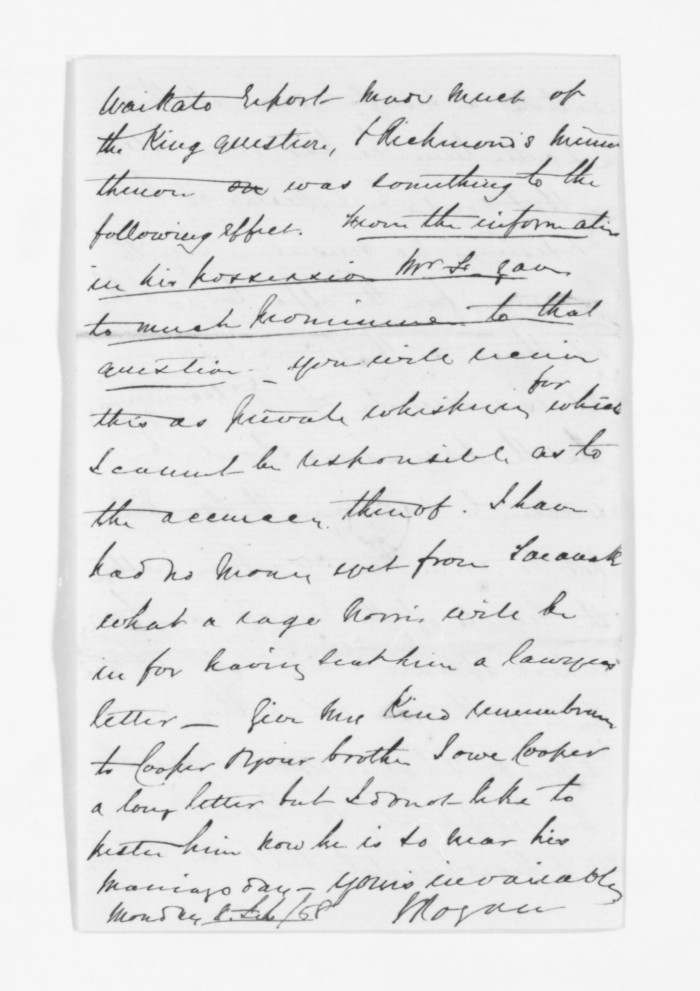 Waikato report made much of
the King question, & Richmond's minute
thereon was something to the
following effect. From the information
in his possession Mr gave
to much prominence to that
question – You will receive
this as private whispering for which
I cannot be responsible as to
the accuracy thereof. I have
had no money yet from
what a rage Norris will be
in for having sent him a lawyers
letter – Give my kind remembrance
to Cooper & your brother I owe Cooper
a long letter but I do not like to
pester him now he is so near his
marriage day – yours invariably
Monday /58 Rogan